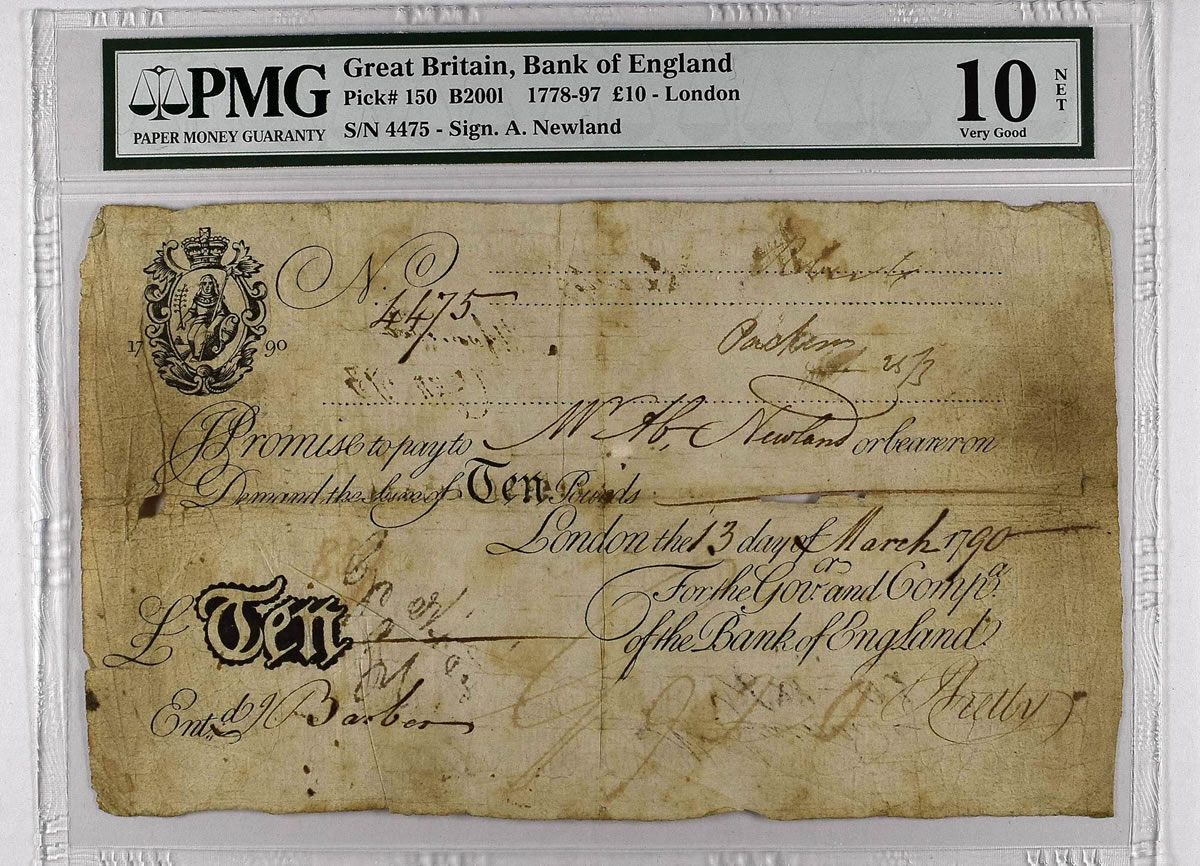 PMG
PAPER MONEY GUARANTY
Great Britain, Bank of England
Pick# 150 B200l 1778-97 £10 - London
S/N 4475 - Sign. A. Newland
10 NET
Very Good
No
4475
17 90
I Promise to pay to Mr Ab. Newland or bearer on
Demand the Sume of Ten Pounds
London the 13 day of March 1790
For the Govr. and Compa.
of the Bank of England.
£ Ten
Entd. J Barber